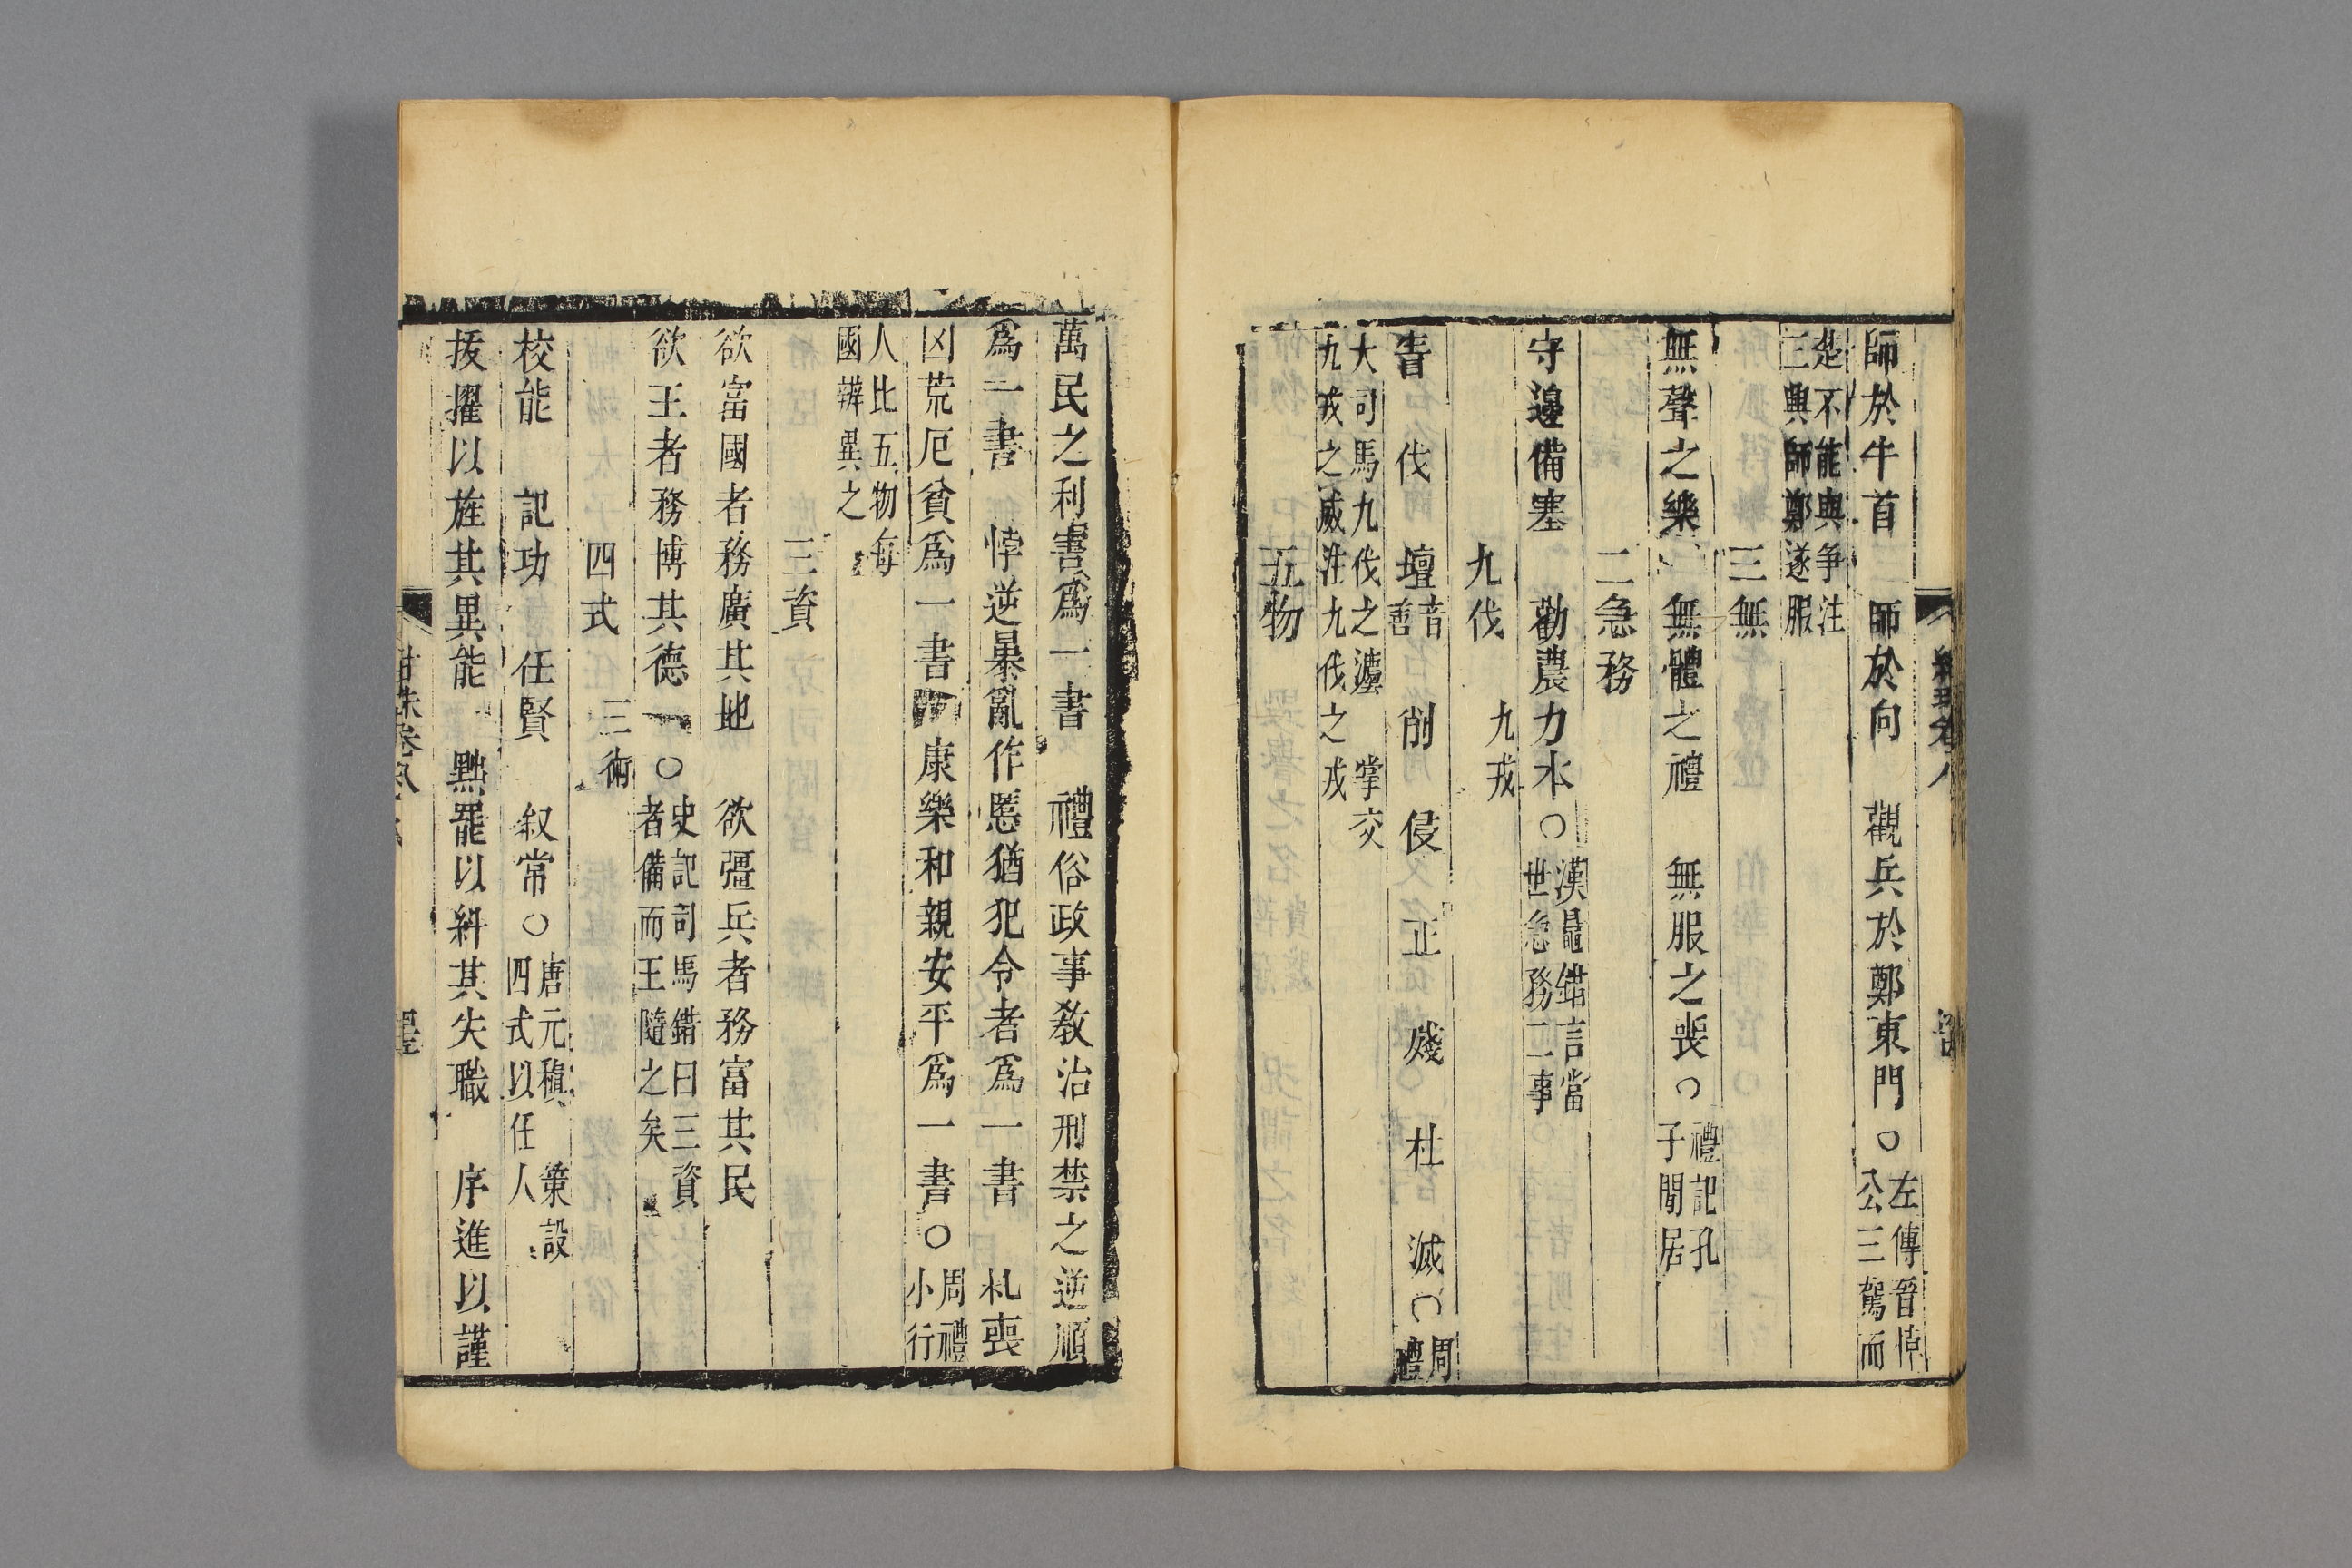 師於牛首 師於向 觀兵於鄭東門○左傳晉悼公三駕而
楚不能與争注三興師鄭遂服
三無
無聲之樂 無體之禮 無服之喪○禮記孔子閒居
二急務
守邊備塞 勸農力本○漢鼂錯言當世急務二事
九伐 九戎
眚 伐 壇音善 削 侵 正 殘 杜 滅○周禮
大司馬九伐之灋 掌交九戎之威注九伐之戎
五物
萬民之利害爲一書 禮俗政事教治刑禁之逆順
爲一書 悖逆暴亂作慝猶犯令者爲一書 札喪
凶荒厄貧爲一書 康樂和親安平爲一書○周禮小行
人比五物每國辨異之
三資
欲富國者務廣其地 欲彊兵者務富其民
欲王者務博其德○史記司馬錯曰三資者備而王隨之矣
四式 三術
校能 記功 任賢 叙常○唐元稹 策設四式以任人
拔擢以旌其異能 黜罷以糾其失職 序進以謹
卷八